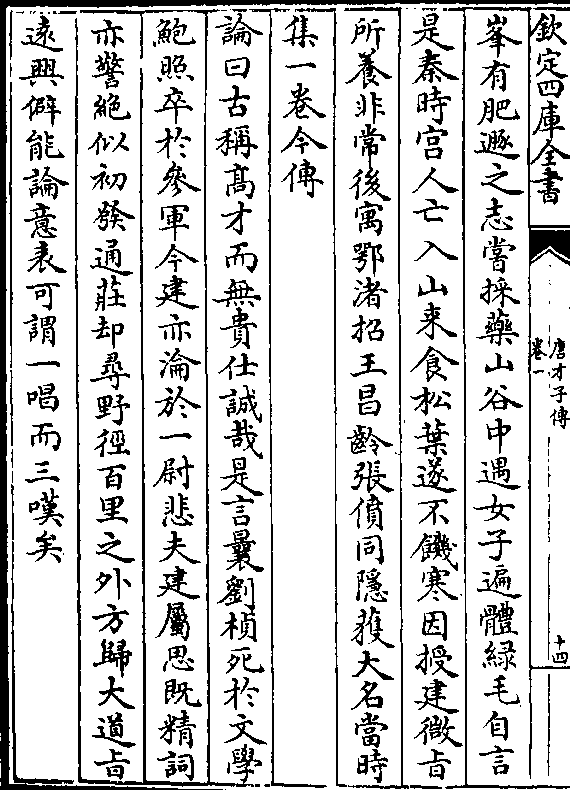 欽定四庫全書
唐才子傳
卷一
十四
峯有肥遯之志嘗採藥山谷中遇女子遍體綠毛自言
是秦時宫人亡入山来食松葉遂不饑寒因授建微旨
所養非常後寓鄂渚招王昌齡張僨同隱獲大名當時
集一卷今傳
論曰古稱髙才而無貴仕誠哉是言曩劉楨死於文學
鮑照卒於參軍今建亦淪於一尉悲夫建屬思既精詞
亦警絶似初發通莊却尋野徑百里之外方歸大道㫖
遠興僻能論意表可謂一唱而三嘆矣